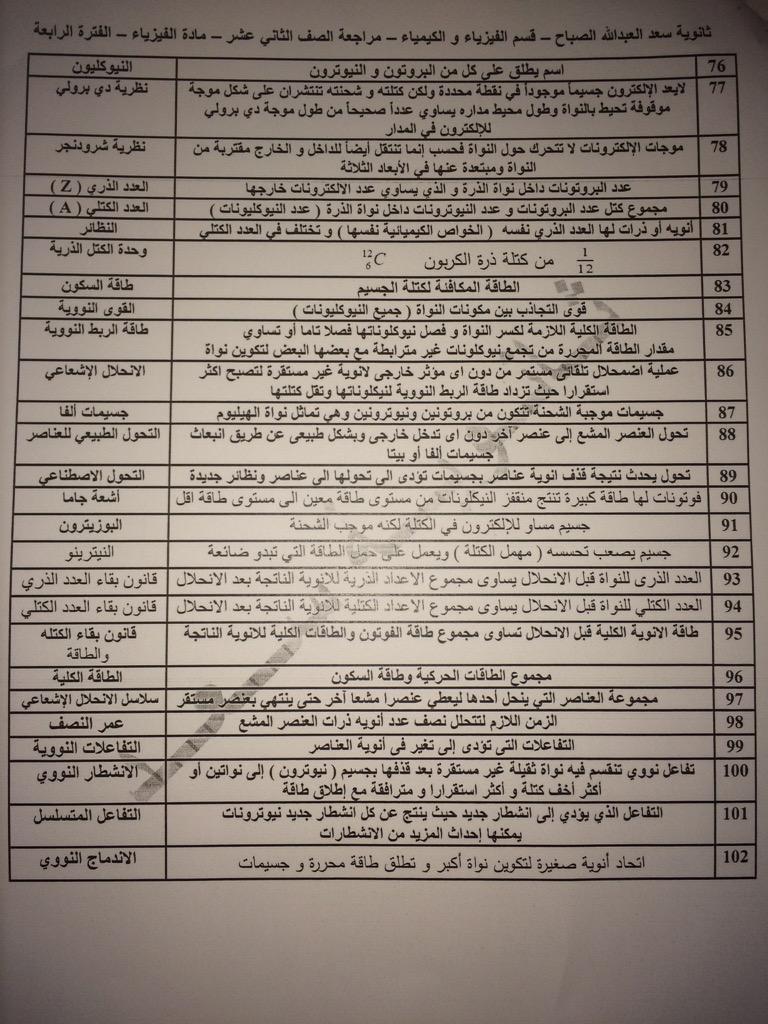 ثانوية سعد العبدالله الصباح – قسم الفيزياء و الكيمياء – مراجعة الصف الثاني عشر – مادة الفيزياء – الفترة الرابعة
76 اسم يطلق على كل من البروتون و النيوترون النيوكليون
77 لايعد الإلكترون جسيماً موجوداً في نقطة محددة ولكن كتلته و شحنته تنتشران على شكل موجة نظرية دي برولي
موقوفة تحيط بالنواة وطول محيط مداره يساوي عدداً صحيحاً من طول موجة دي برولي
للإلكترون في المدار
78 موجات الإلكترونات لا تتحرك حول النواة فحسب إنما تنتقل أيضاً للداخل و الخارج مقتربة من نظرية شرودنجر
النواة ومبتعدة عنها في الأبعاد الثلاثة
79 عدد البروتونات داخل نواة الذرة و الذي يساوي عدد الالكترونات خارجها العدد الذري ( Z )
80 مجموع كتل عدد البروتونات و عدد النيوترونات داخل نواة الذرة ( عدد النيوكليونات ) العدد الكتلي ( A )
81 أنويه أو ذرات لها العدد الذري نفسه ( الخواص الكيميائية نفسها ) و تختلف في العدد الكتلي النظائر
82 1/12 من كتلة ذرة الكربون ¹²₆C وحدة الكتل الذرية
83 الطاقة المكافئة لكتلة الجسيم طاقة السكون
84 قوى التجاذب بين مكونات النواة ( جميع النيوكليونات ) القوى النووية
85 الطاقة الكلية اللازمة لكسر النواة و فصل نيوكلوناتها فصلا تاما أو تساوي طاقة الربط النووية
مقدار الطاقة المحررة من تجمع نيوكلونات غير مترابطة مع بعضها البعض لتكوين نواة
86 عملية اضمحلال تلقائى مستمر من دون اى مؤثر خارجى لانوية غير مستقرة لتصبح اكثر الانحلال الإشعاعي
استقرارا حيث تزداد طاقة الربط النووية لنيكلوناتها وتقل كتلتها
87 جسيمات موجبة الشحنة تتكون من بروتونين ونيوترونين وهي تماثل نواة الهيليوم جسيمات ألفا
88 تحول العنصر المشع إلى عنصر آخر دون اى تدخل خارجى وبشكل طبيعى عن طريق انبعاث التحول الطبيعي للعناصر
جسيمات ألفا أو بيتا
89 تحول يحدث نتيجة قذف انوية عناصر بجسيمات تؤدى الى تحولها الى عناصر ونظائر جديدة التحول الاصطناعي
90 فوتونات لها طاقة كبيرة تنتج منقفز النيكلونات من مستوى طاقة معين الى مستوى طاقة اقل أشعة جاما
91 جسيم مساو للإلكترون في الكتلة لكنه موجب الشحنة البوزيترون
92 جسيم يصعب تحسسه ( مهمل الكتلة ) ويعمل على حمل الطاقة التي تبدو ضائعة النيترينو
93 العدد الذرى للنواة قبل الانحلال يساوى مجموع الاعداد الذرية للانوية الناتجة بعد الانحلال قانون بقاء العدد الذري
94 العدد الكتلي للنواة قبل الانحلال يساوى مجموع الاعداد الكتلية للانوية الناتجة بعد الانحلال قانون بقاء العدد الكتلي
95 طاقة الانوية الكلية قبل الانحلال تساوى مجموع طاقة الفوتون والطاقات الكلية للانوية الناتجة قانون بقاء الكتله
والطاقة
96 مجموع الطاقات الحركية وطاقة السكون الطاقة الكلية
97 مجموعة العناصر التي ينحل أحدها ليعطي عنصرا مشعا آخر حتى ينتهي بعنصر مستقر سلاسل الانحلال الإشعاعي
98 الزمن اللازم لتتحلل نصف عدد أنويه ذرات العنصر المشع عمر النصف
99 التفاعلات التى تؤدى إلى تغير فى أنوية العناصر التفاعلات النووية
100 تفاعل نووي تنقسم فيه نواة ثقيلة غير مستقرة بعد قذفها بجسيم ( نيوترون ) إلى نواتين أو الانشطار النووي
أكثر أخف كتلة و أكثر استقرارا و مترافقة مع إطلاق طاقة
101 التفاعل الذي يؤدي إلى انشطار جديد حيث ينتج عن كل انشطار جديد نيوترونات التفاعل المتسلسل
يمكنها إحداث المزيد من الانشطارات
102 اتحاد أنوية صغيرة لتكوين نواة أكبر و تطلق طاقة محررة و جسيمات الاندماج النووي